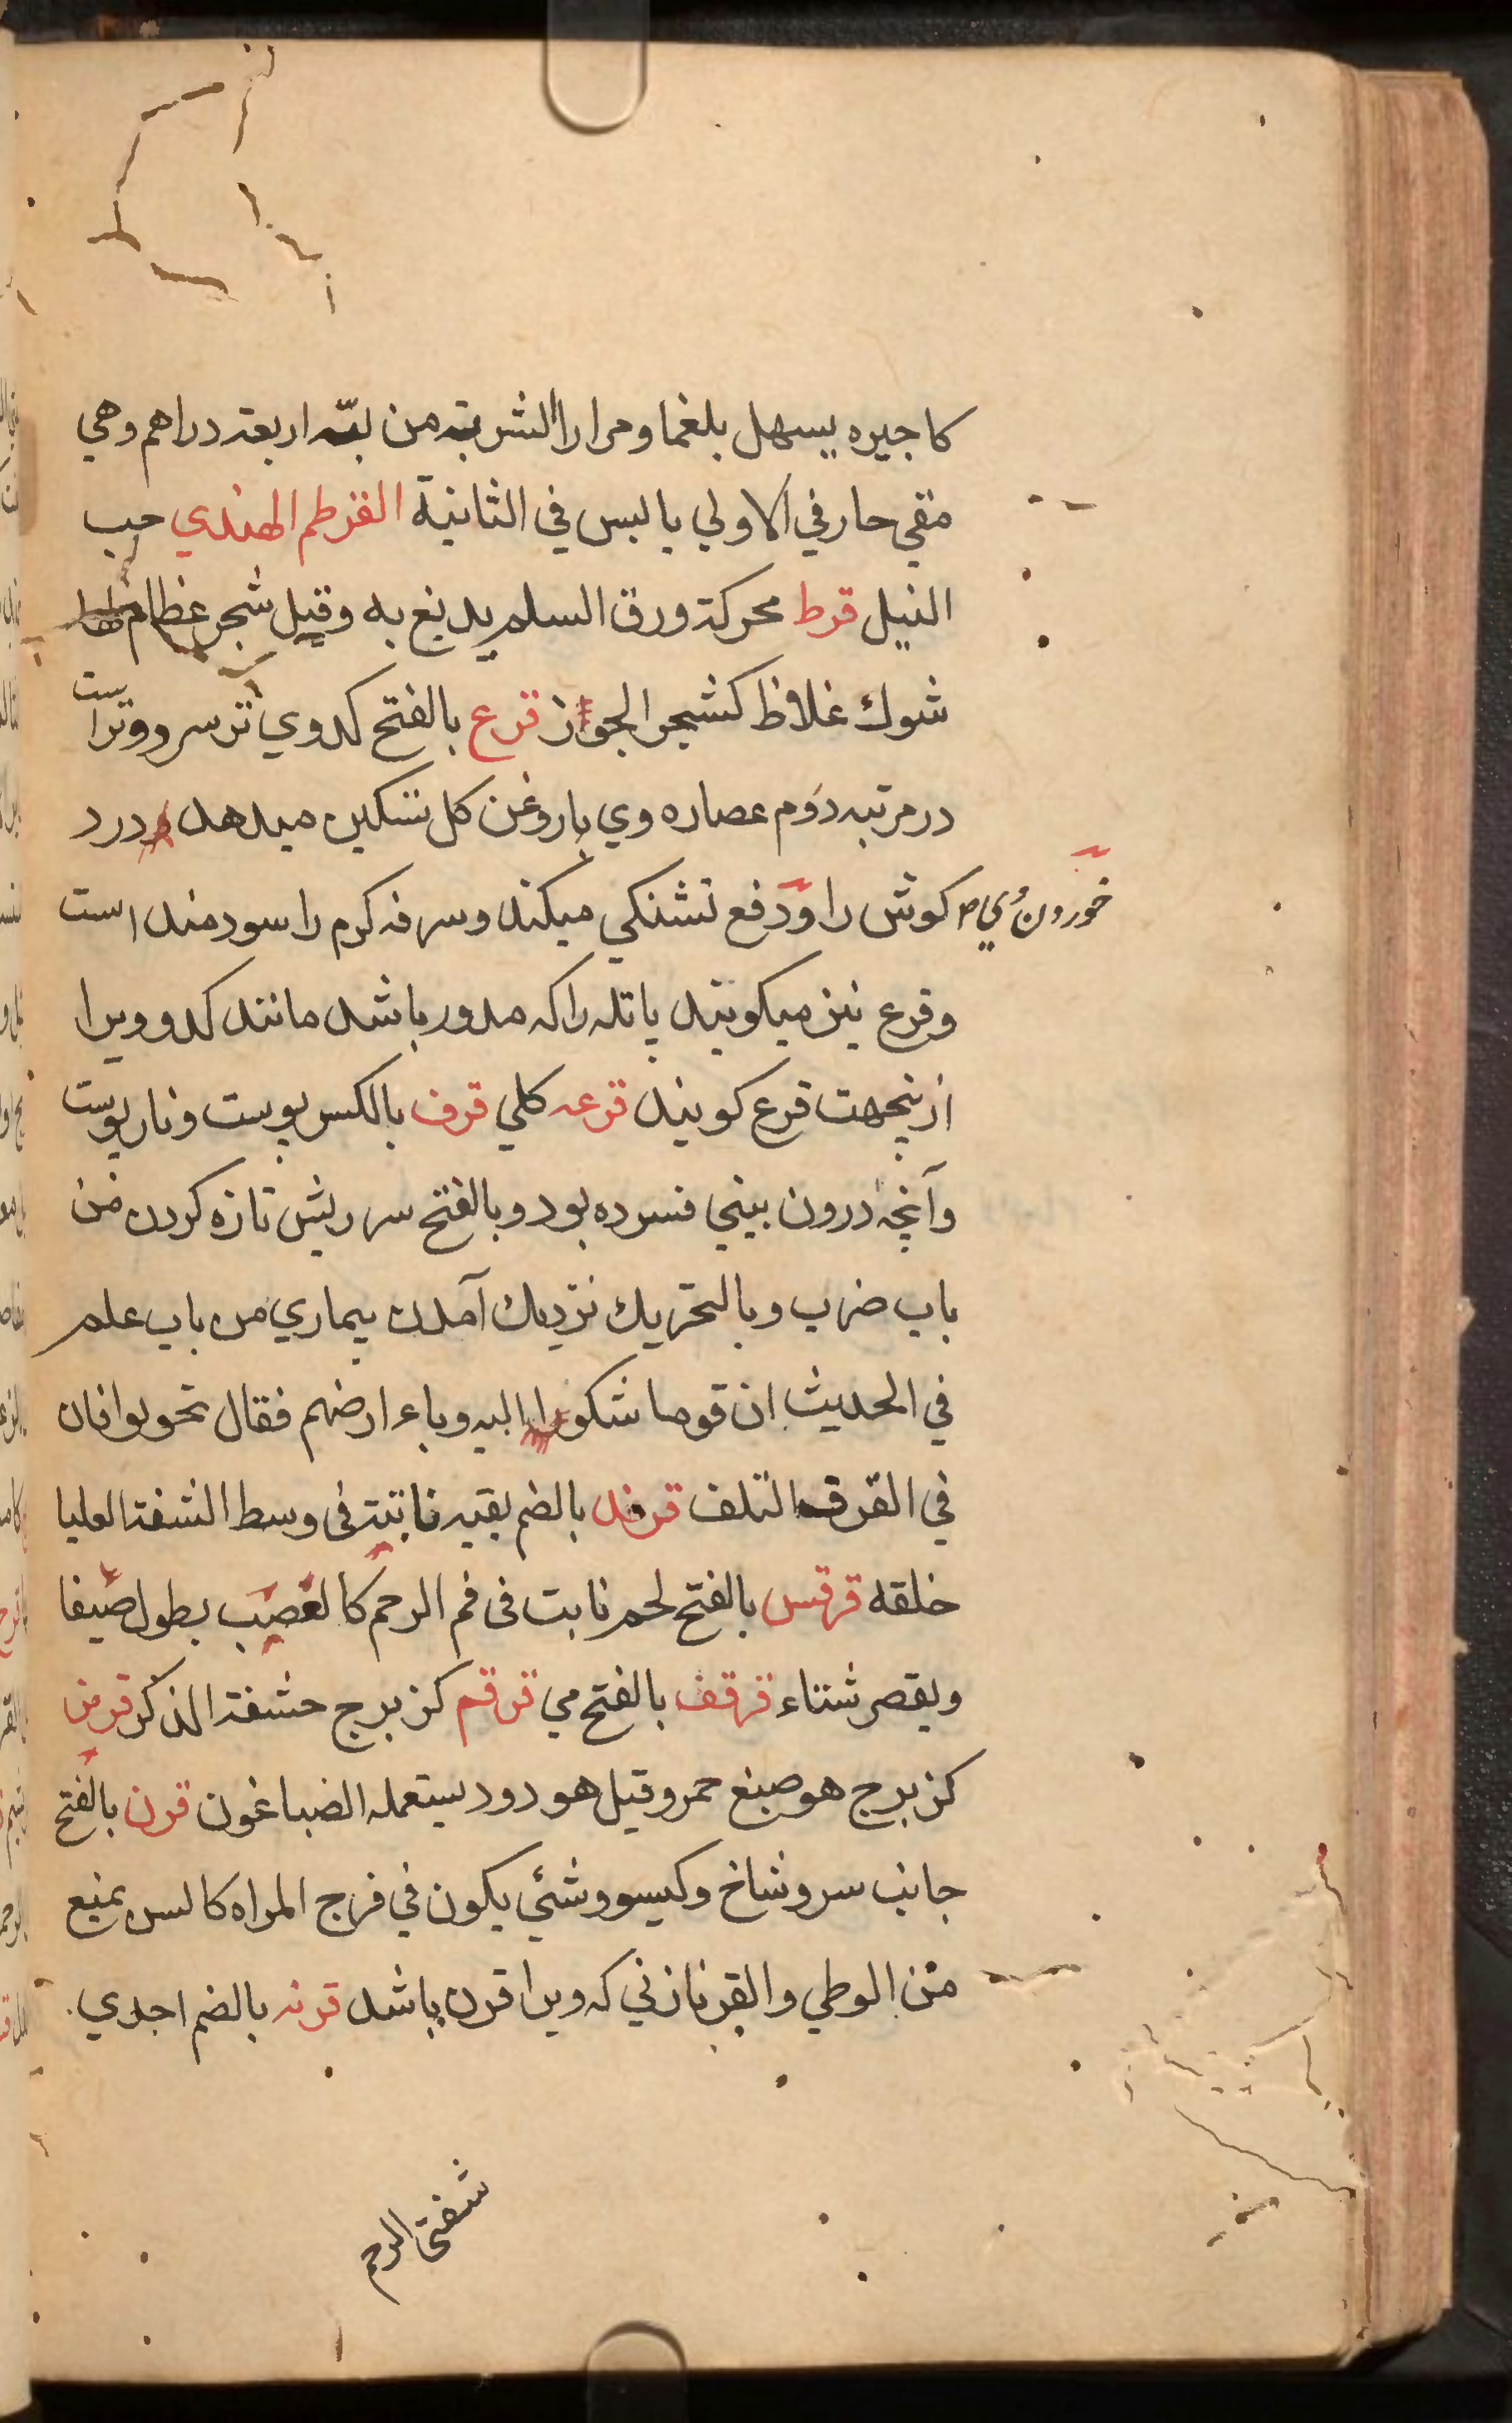 كاجيره يسهل بلغما ومرارا الشربة من لبّه اربعة دراهم وهي
مقي حار في الاولي يا لبس في الثانية القرطم الهندي حب
النيل قرط محركة ورق السلم يدبغ به وقيل شجر عظام لها
شوك غلاظ كشجر الجوز قرع بالفتح كدوي تر سرد وتر است
در مرتبه دوم عصاره وي با روغن كل تسكين ميدهد درد
كوش را و دفع تشنكي ميكند وسرفه كرم را سودمند است
خوردن وي
وقرع نيز ميكويند پاتله را كه مدور باشد مانند كدو ويرا
ازينجهت قرع كويند قرعه كلي قرف بالكسر پوست و نار پوست
وآنچه درون بيني فسرده بود وبالفتح سر ريش تازه كردن من
باب ضرب وبالتحريك نزديك آمدن بيماري من باب علم
في الحديث ان قوما شكوا اليه وباء ارضهم فقال تحولوا فان
في القرف التلف قرفد بالضم بقيه ناتية فى وسط الشفة العليا
خلقة قرقس بالفتح لحم نابت فى فم الرحم كالعصب يطول صيفا
ويقصر شتاء قرقف بالفتح مي قرقم كزبرج حشفة الذكر قرمز
كزبرج هو صبغ حمر وقيل هو دود يستعمله الصباغون قرن بالفتح
جانب سر وشاخ وكيسو وشئي يكون في فرج المراه كالسن يمنع
من الوطي والقرنا زني كه ويرا قرن باشد قرنه بالضم احدي
شفتى الرحم